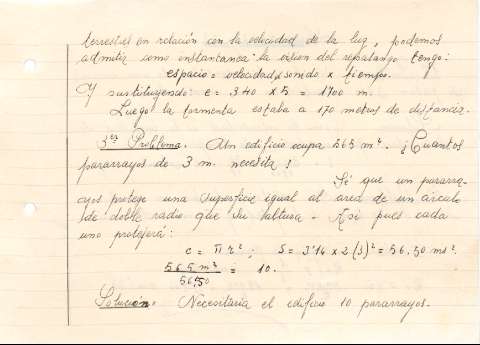 terrestres en relación con la velocidad de la luz, podemos
admitir como instantanea la vision del repalango tengo:
espacio = velocidad sonido x tiempo.
Y sustituyendo: e = 340 x 5 = 1700 m.
Luego la tormenta estaba a 170 metros de distancia.
3er Problema. Un edificio ocupa 565 m². ¡Cuantos
pararrayos de 3 m. necesita!
Sé que un pararra-
yos protege una superficie igual al area de un circulo
de doble radio que su altura - Asi pues cada
uno protejerá:
c = π r²; S = 3'14 x 2 (3)² = 56.50 ms².
565 m² / 56'50 = 10.
Solución. Necesitaria el edificio 10 pararrayos.